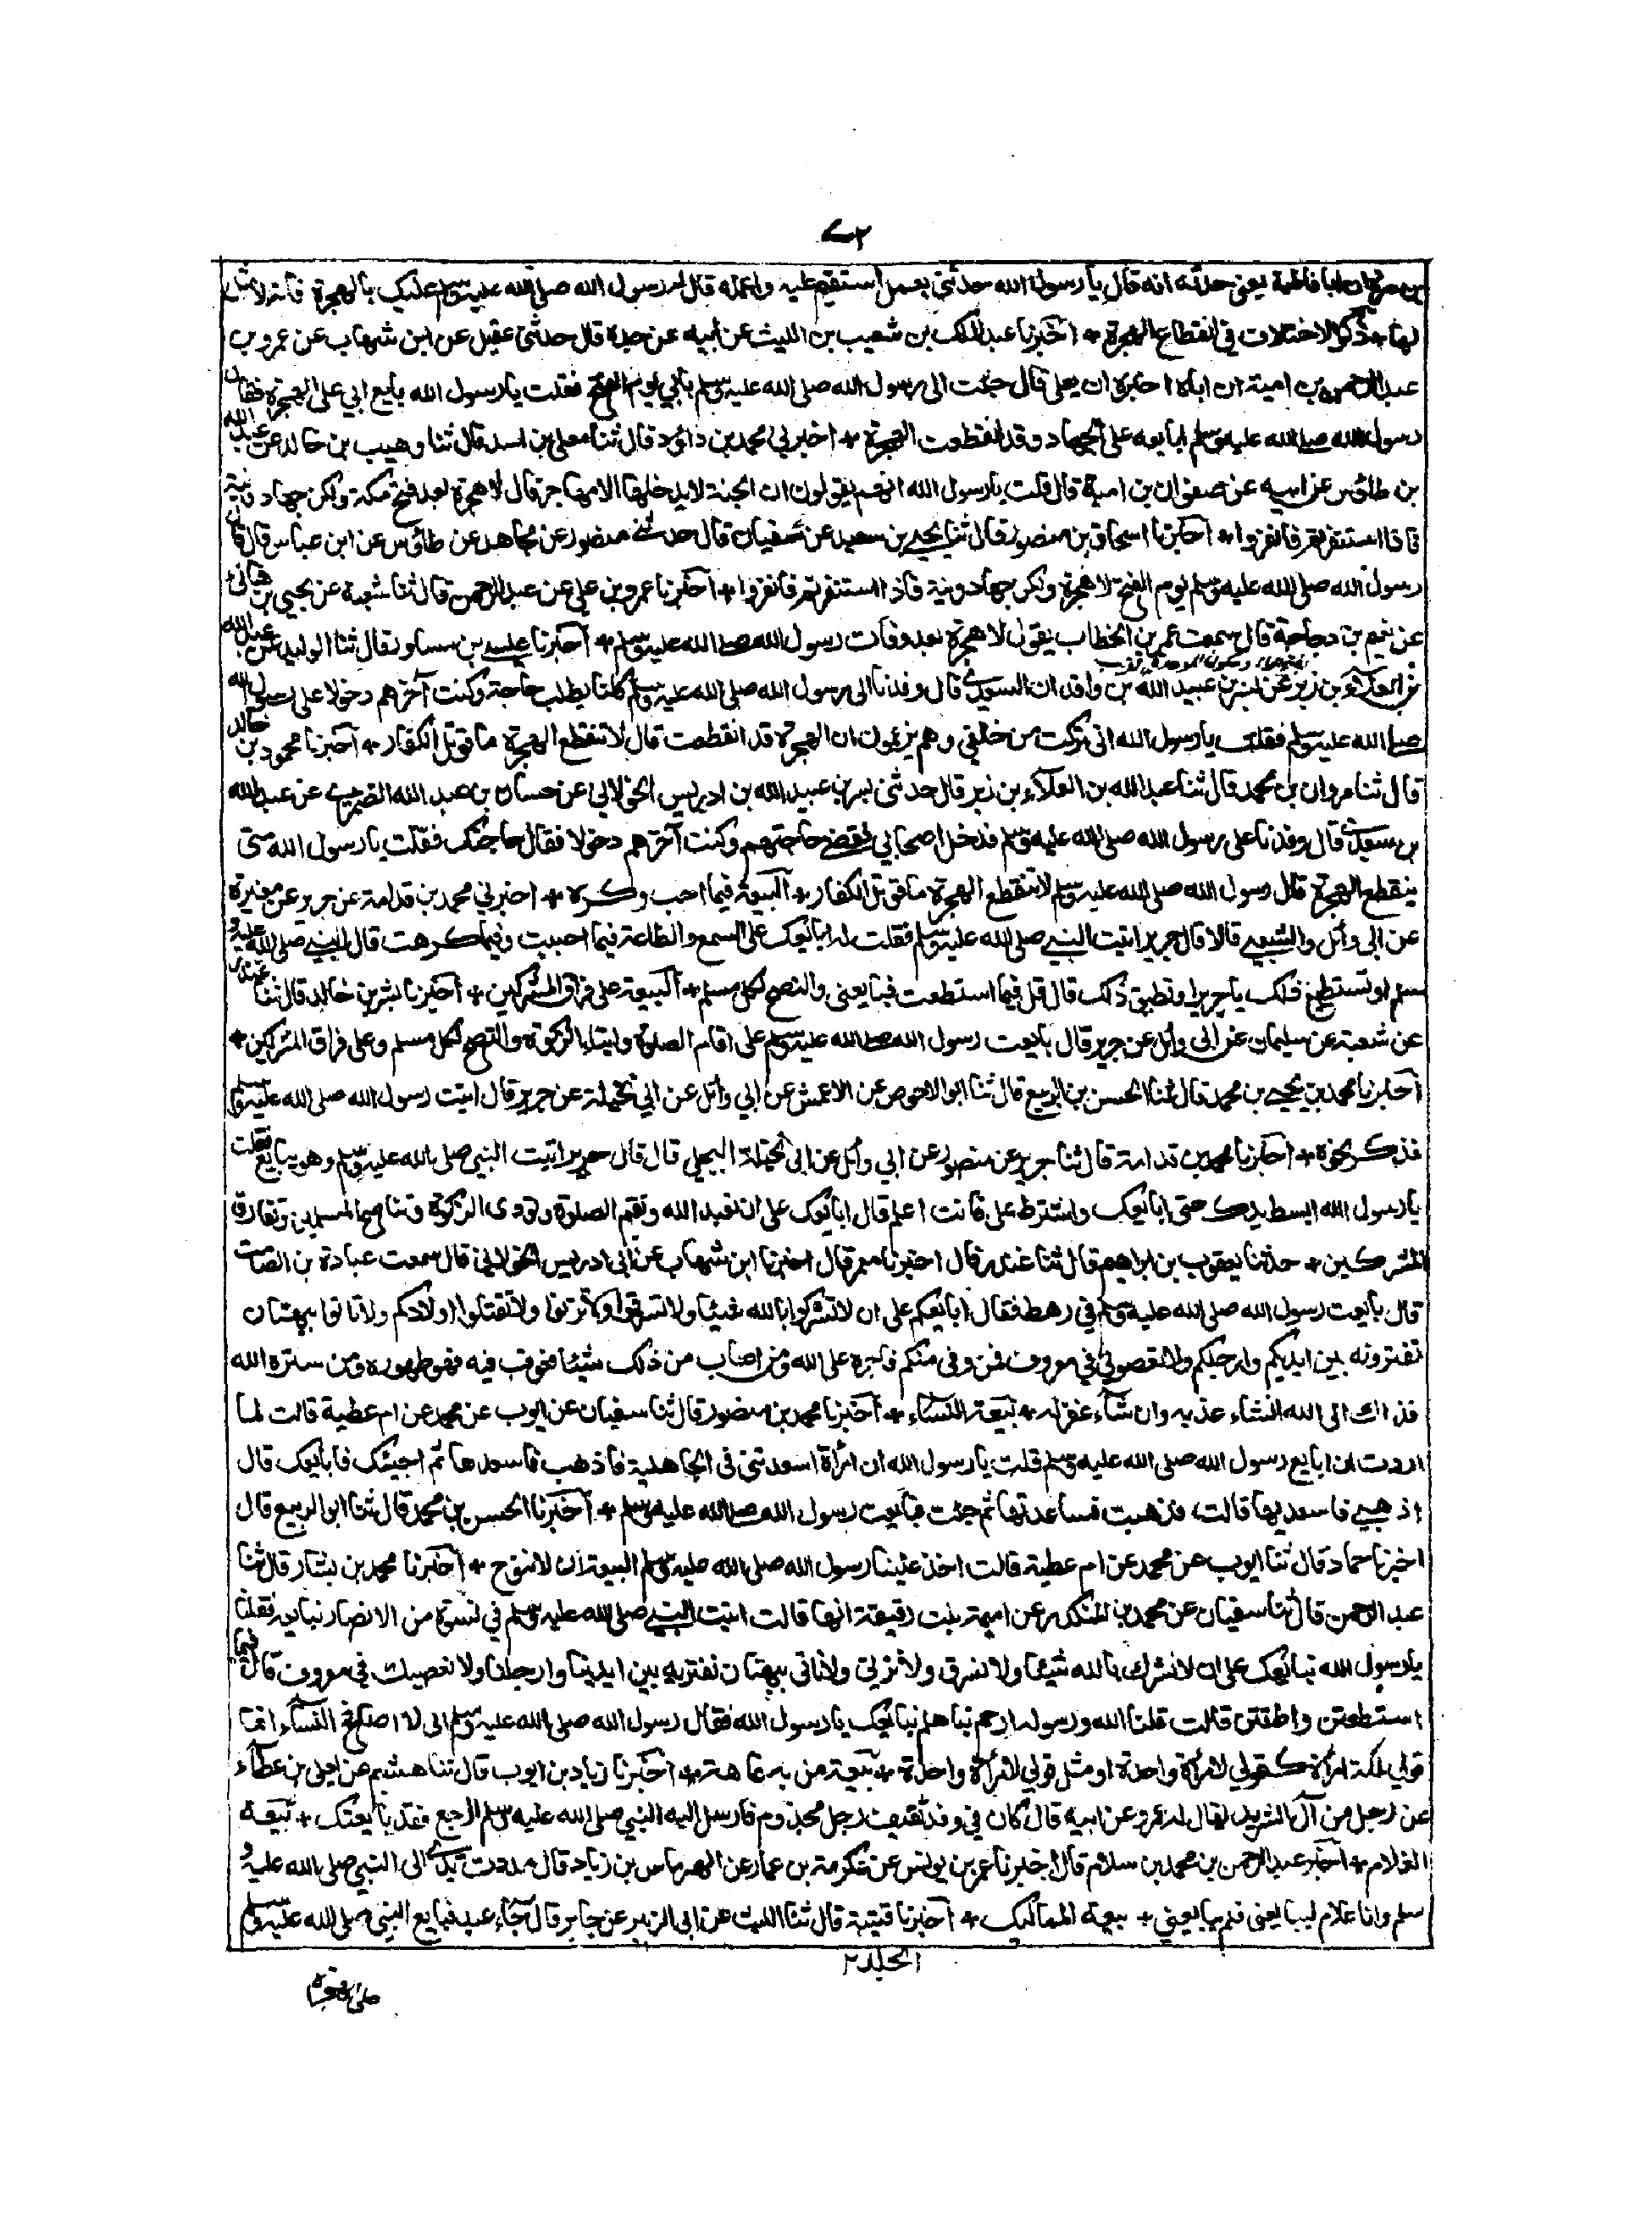 ٧٢
بن مرة ان ابا فاطمة يعنى حدثه انه قال يا رسول الله حدثنى بعمل استقيم عليه واعمله قال له رسول الله صلى الله عليه وسلم عليك بالهجرة فانه لا مثل
لها + ذكر الاختلاف فى انقطاع الهجرة + اخبرنا عبد الملك بن شعيب بن الليث عن ابيه عن جده قال حدثنى عقيل عن ابن شهاب عن عمرو بن
عبد الرحمن بن امية ان اباه اخبره ان يعلى قال جئت الى رسول الله صلى الله عليه وسلم بابى يوم الفتح فقلت يا رسول الله بايع ابي على الهجرة فقال
رسول الله صلى الله عليه وسلم ابايعه على الجهاد وقد انقطعت الهجرة + اخبرني محمد بن داؤد قال ثنا معلى بن اسد قال ثنا وهيب بن خالد عن عبد الله
بن طاؤس عن ابيه عن صفوان بن امية قال قلت يا رسول الله انهم يقولون ان الجنة لا يدخلها الا مهاجر قال لا هجرة بعد فتح مكة ولكن جهاد ونية
فاذا استنفرتم فانفروا + اخبرنا اسحاق بن منصور قال ثنا يحيى بن سعيد عن سفيان قال حدثنى منصور عن مجاهد عن طاؤس عن ابن عباس قال قال
رسول الله صلى الله عليه وسلم يوم الفتح لا هجرة ولكن جهاد ونية فاذا استنفرتم فانفروا + اخبرنا عمرو بن علي عن عبد الرحمن قال ثنا شعبة عن يحيى بن هانئ
عن نعيم بن دجاجة قال سمعت عمر بن الخطاب يقول لا هجرة بعد وفات رسول الله صلى الله عليه وسلم + اخبرنا عيسى بن مساور قال ثنا الوليد عن عبد الله
بن العلاء بن زبر عن بسر بن عبيد الله بن واقد ان السعدى قال وفدنا الى رسول الله صلى الله عليه وسلم كلنا يطلب حاجة وكنت آخرهم دخولا على رسول الله
صلى الله عليه وسلم فقلت يا رسول الله انى تركت من خلفي وهم يزعمون ان الهجرة قد انقطعت قال لا تنقطع الهجرة ما قوتل الكفار + اخبرنا محمود بن خالد
قال ثنا مروان بن محمد قال ثنا عبد الله بن العلاء بن زبر قال حدثنى بسر بن عبيد الله بن ادريس الخولاني عن حسان بن عبد الله الضمري عن عبد الله
بن سعدى قال وفدنا على رسول الله صلى الله عليه وسلم فدخل اصحابي فقضى حاجتهم وكنت آخرهم دخولا فقال حاجتك فقلت يا رسول الله متى
ينقطع الهجرة قال رسول الله صلى الله عليه وسلم لا تنقطع الهجرة ما قوتل الكفار + البيعة فيما احب وكره + اخبرني محمد بن قدامة عن جرير عن مغيرة
عن ابى وائل والشعبى قالا قال جرير اتيت النبى صلى الله عليه وسلم فقلت له ابايعك على السمع والطاعة فيما احببت وفيما كرهت قال النبى صلى الله عليه و
سلم او تستطيع ذلك يا جرير او تطيق ذلك قال قل فيما استطعت فبايعنى والنصح لكل مسلم + البيعة على فراق المشركين + اخبرنا بشر بن خالد قال ثنا غندر
عن شعبة عن سليمان عن ابى وائل عن جرير قال بايعت رسول الله صلى الله عليه وسلم على اقام الصلوة وايتاء الزكوة والنصح لكل مسلم وعلى فراق المشركين +
اخبرنا محمد بن يحيى بن محمد قال ثنا الحسن بن الربيع قال ثنا ابو الاحوص عن الاعمش عن ابي وائل عن ابي نخيلة عن جرير قال اتيت رسول الله صلى الله عليه وسلم
فذكر نحوه + اخبرنا محمد بن قدامة قال ثنا جرير عن منصور عن ابي وائل عن ابى نخيلة البجلي قال قال جرير اتيت النبي صلى الله عليه وسلم وهو يبايع فقلت
يا رسول الله ابسط يدك حتى ابايعك واشترط على فانت اعلم قال ابايعك على ان تعبد الله وتقيم الصلوة وتودى الزكوة وتناصح المسلمين وتفارق
المشركين + حدثنا يعقوب بن ابراهيم قال ثنا غندر قال اخبرنا معمر قال اخبرنا ابن شهاب عن ابى ادريس الخولانى قال سمعت عبادة بن الصامت
قال بايعت رسول الله صلى الله عليه وسلم في رهط فقال ابايعكم على ان لا تشركوا بالله شيئا ولا تسرقوا ولا تزنوا ولا تقتلوا اولادكم ولا تاتوا ببهتان
تفترونه بين ايديكم وارجلكم ولا تعصوني في معروف فمن وفى منكم فاجره على الله ومن اصاب من ذلك شيئا فعوقب فيه فهو طهوره ومن ستره الله
فذاك الى الله ان شاء عذبه وان شاء غفر له + بيعة النساء + اخبرنا محمد بن منصور قال ثنا سفيان عن ايوب عن محمد عن ام عطية قالت لما
اردت ان ابايع رسول الله صلى الله عليه وسلم قلت يا رسول الله ان امرأة اسعدتنى فى الجاهلية فاذهب فاسعدها ثم اجيئك فابايعك قال
اذهبى فاسعديها قالت فذهبت فساعدتها ثم جئت فبايعت رسول الله صلى الله عليه وسلم + اخبرنا الحسن بن محمد قال ثنا ابو الربيع قال
اخبرنا حماد قال ثنا ايوب عن محمد عن ام عطية قالت اخذ علينا رسول الله صلى الله عليه وسلم البيعة ان لا ننوح + اخبرنا محمد بن بشار قال ثنا
عبد الرحمن قال ثنا سفيان عن محمد بن المنكدر عن اميمة بنت رقيقة انها قالت اتيت النبى صلى الله عليه وسلم في نسوة من الانصار نبايعه فقلنا
يا رسول الله نبايعك على ان لا نشرك بالله شيئا ولا نسرق ولا نزنى ولا ناتى ببهتان نفتريه بين ايدينا وارجلنا ولا نعصيك فى معروف قال فيما
استطعتن واطقتن قالت قلنا الله ورسوله ارحم بنا هلم نبايعك يا رسول الله فقال رسول الله صلى الله عليه وسلم انى لا اصافح النساء انما
قولى لمائة امرأة كقولي لامرأة واحدة او مثل قولي لامرأة واحدة + بيعة من به عاهة + اخبرنا زياد بن ايوب قال ثنا هشيم عن يعلى بن عطاء
عن رجل من آل الشريد يقال له عمرو عن ابيه قال كان في وفد ثقيف رجل مجذوم فارسل اليه النبي صلى الله عليه وسلم ارجع فقد بايعتك + بيعة
الغلام + اخبرنا عبد الرحمن بن محمد بن سلام قال اخبرنا عمر بن يونس عن عكرمة بن عمار عن الهرماس بن زياد قال مددت يدى الى النبي صلى الله عليه و
سلم وانا غلام ليبايعنى فلم يبايعنى + بيعة المماليك + اخبرنا قتيبة قال ثنا الليث عن ابى الزبير عن جابر قال جاء عبد فبايع النبى صلى الله عليه وسلم
الجلد ٢